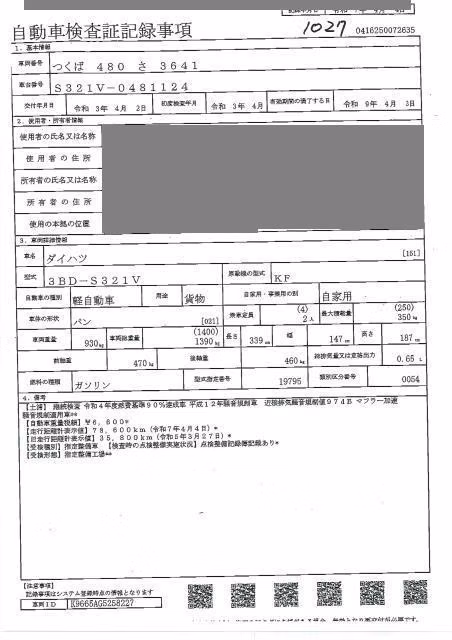 自動車検査証記録事項
1027
0416250072635
1. 基本情報
車両番号 つくば 480 さ 3641
車台番号 S321V-0481124
交付年月日 令和 3年 4月 2日 初度検査年月 令和 3年 4月 有効期間の満了する日 令和 9年 4月 3日
2. 使用者・所有者情報
使用者の氏名又は名称
使用者の住所
所有者の氏名又は名称
所有者の住所
使用の本拠の位置
3. 車両詳細情報
車名 ダイハツ [151]
型式 3BD-S321V 原動機の型式 KF
自動車の種別 軽自動車 用途 貨物 自家用・事業用の別 自家用
車体の形状 バン [021] 乗車定員 (4) 2人 最大積載量 (250) 350kg
車両重量 930kg 車両総重量 (1400) 1390kg 長さ 339cm 幅 147cm 高さ 187cm
前軸重 470kg 後軸重 460kg 総排気量又は定格出力 0.65L
燃料の種類 ガソリン 型式指定番号 19795 類別区分番号 0054
4. 備考
【土浦】 継続検査 令和4年度燃費基準90%達成車 平成12年騒音規制車 近接排気騒音規制値97dB マフラー加速
騒音規制適用車**
【自動車重量税額】¥6,600*
【走行距離計表示値】78,600km(令和7年4月4日)*
【旧走行距離計表示値】35,800km(令和5年3月27日)*
【受検種別】指定整備車 【検査時の点検整備実施状況】点検整備記録簿記載あり*
【受検形態】指定整備工場**
【注意事項】
記録事項はシステム登録時点の情報となります
車両ID K9665AG5258227